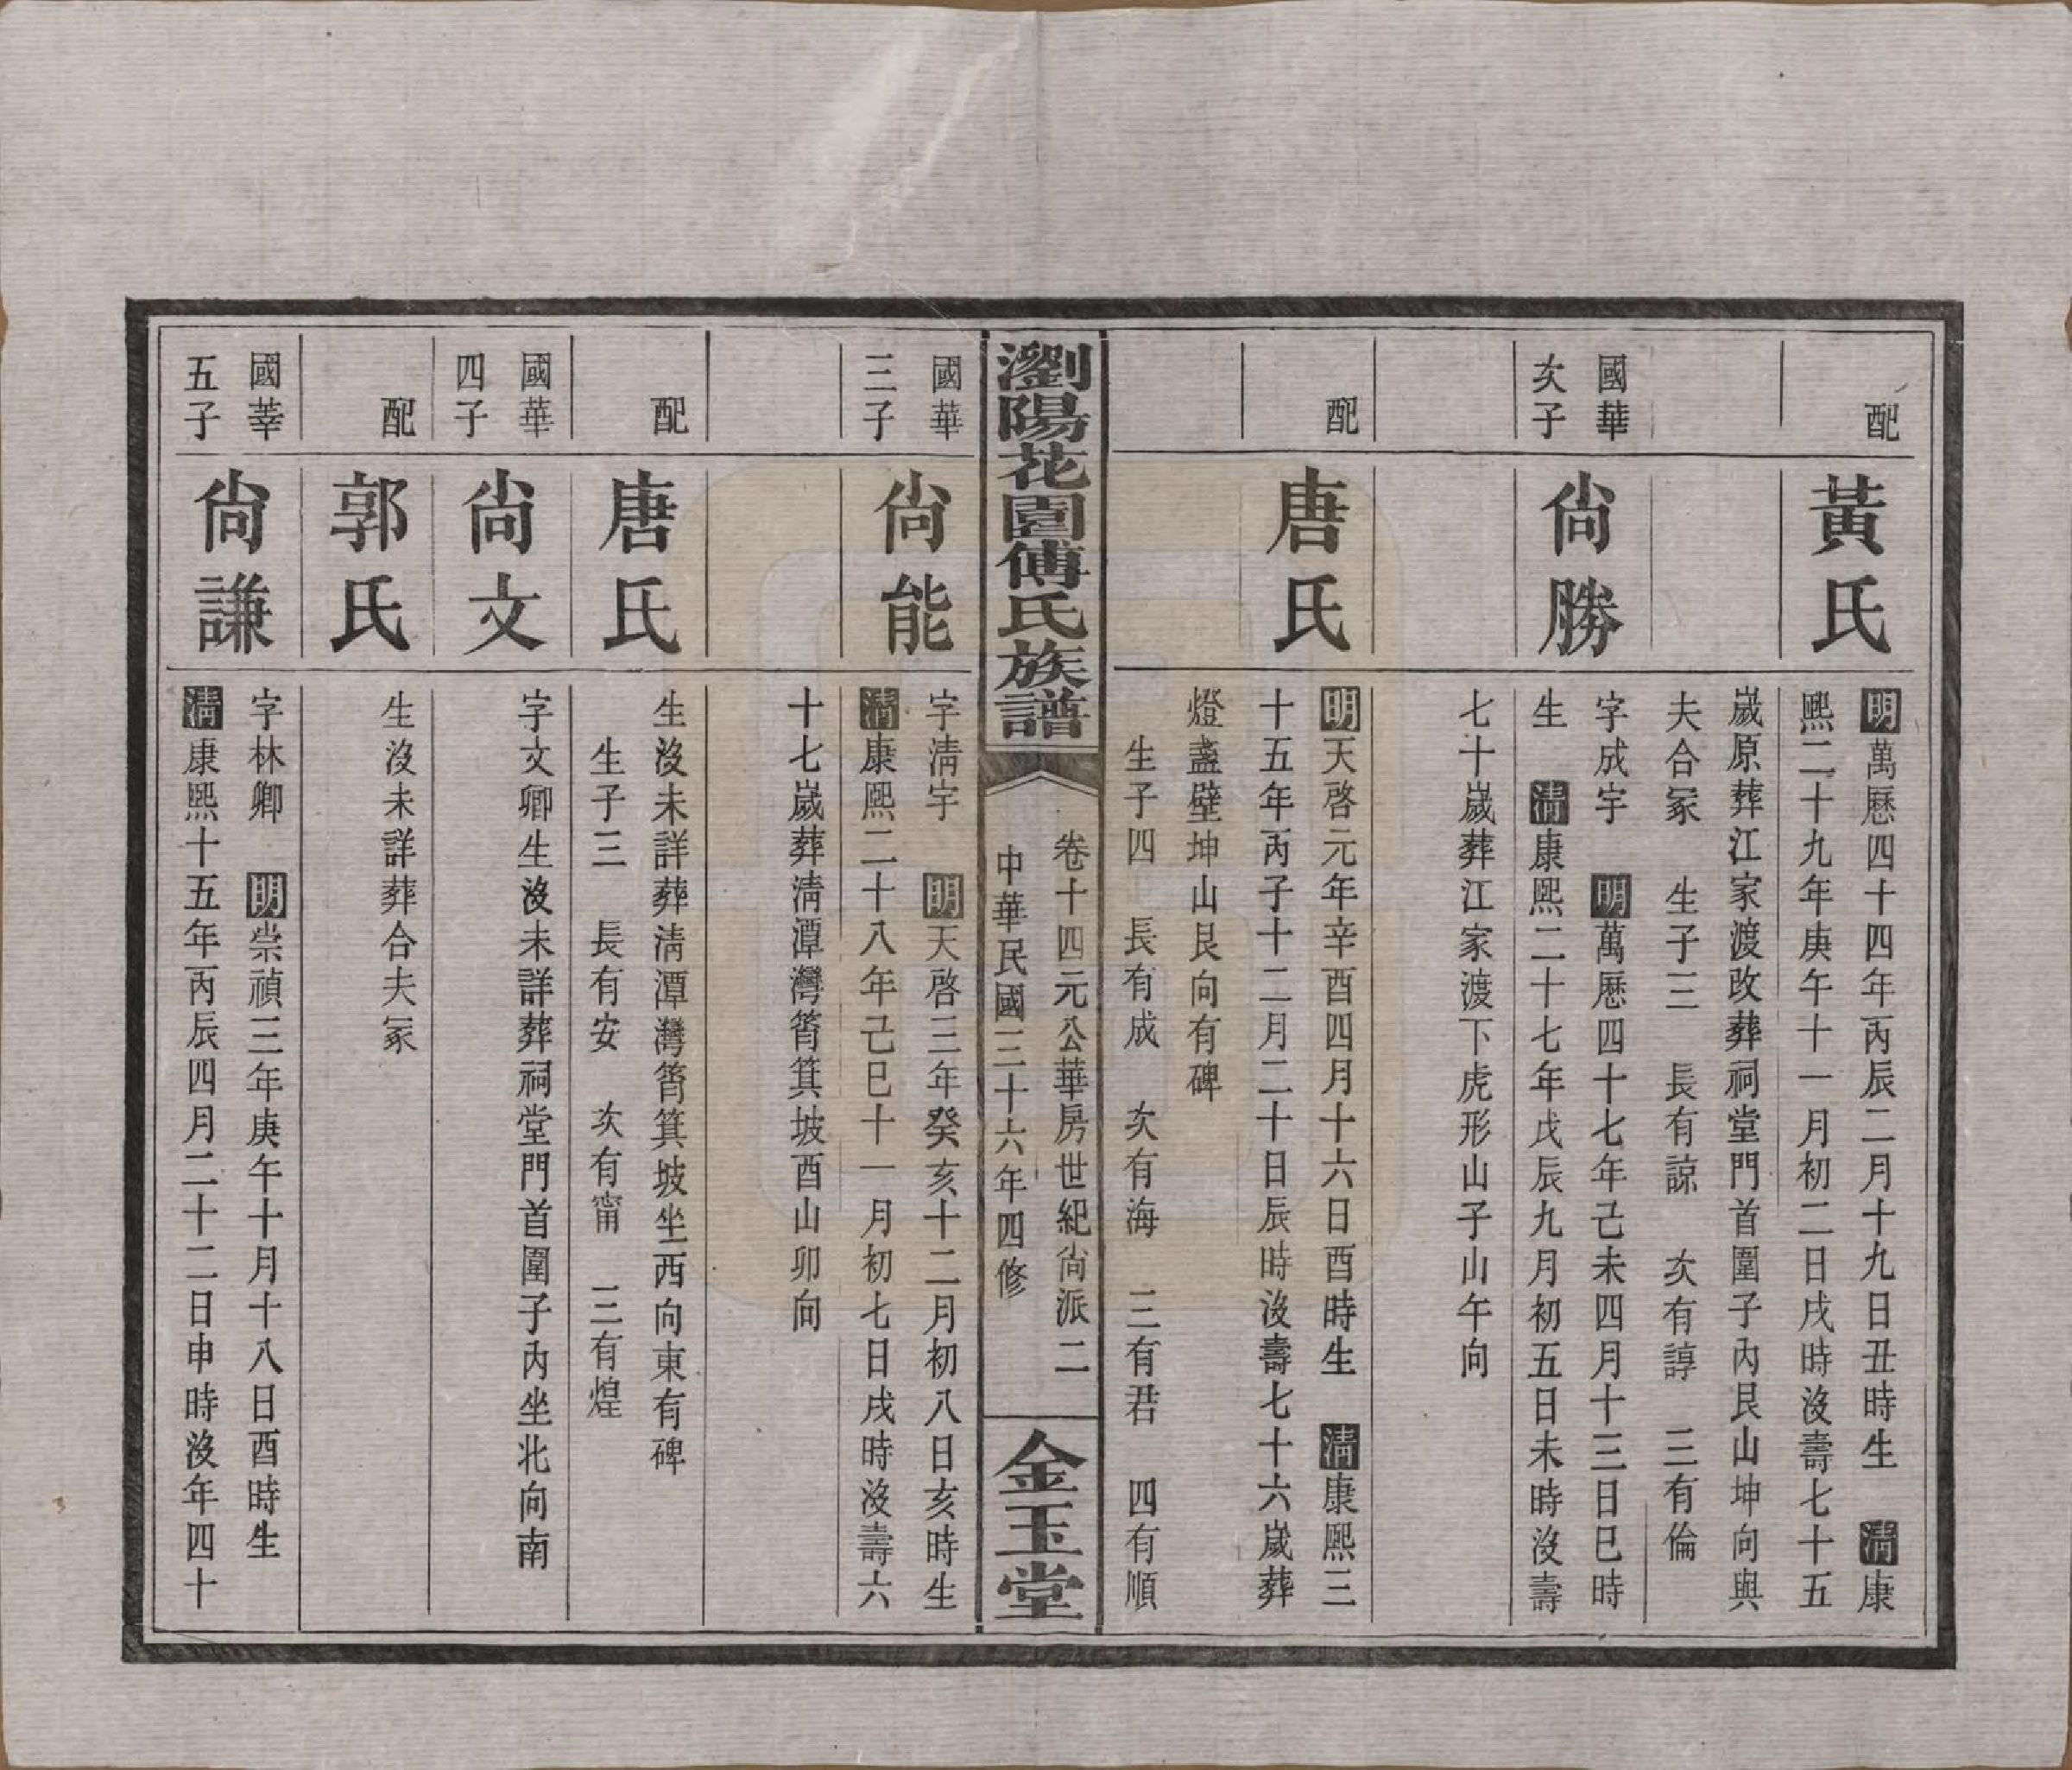 配
黃氏
明萬曆四十四年丙辰二月十九日丑時生　清康
熙二十九年庚午十一月初二日戌時沒壽七十五
歲原葬江家渡改葬祠堂門首圍子內艮山坤向與
夫合冢　生子三　長有諒　次有諄　三有倫
國華
次子
尙勝
字成宇　明萬曆四十七年己未四月十三日巳時
生　清康熙二十七年戊辰九月初五日未時沒壽
七十歲葬江家渡下虎形山子山午向
配
唐氏
明天啓元年辛酉四月十六日酉時生　清康熙三
十五年丙子十二月二十日辰時沒壽七十六歲葬
燈盞壁坤山艮向有碑
生子四　長有成　次有海　三有君　四有順
瀏陽花園傅氏族譜
卷十四元公華房世紀尙派二
中華民國三十六年四修
金玉堂
國華
三子
尙能
字清宇　明天啓三年癸亥十二月初八日亥時生
清康熙二十八年己巳十一月初七日戌時沒壽六
十七歲葬清潭灣筲箕坡酉山卯向
配
唐氏
生沒未詳葬清潭灣筲箕坡坐西向東有碑
生子三　長有安　次有甯　三有煌
國華
四子
尙文
字文卿生沒未詳葬祠堂門首圍子內坐北向南
配
郭氏
生沒未詳葬合夫冢
國華
五子
尙謙
字林卿　明崇禎三年庚午十月十八日酉時生
清康熙十五年丙辰四月二十二日申時沒年四十